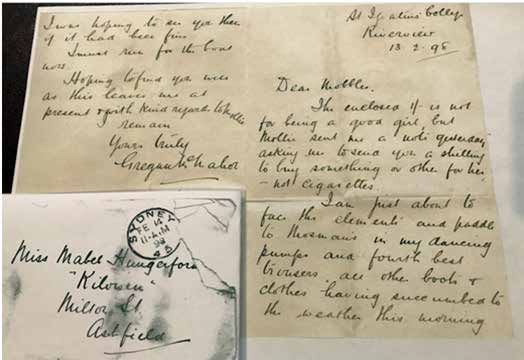 St Ignatius College
Riverview
13-2-98
Dear Mobbles.
The enclosed 1/- is not
for being a good girl but
Mollie sent me a note yesterday
asking me to send you a shilling
to buy something or other for her
- not cigarettes.
I am just about to
face the elements and paddle
to Mosmans in my dancing
pumps and fourth best
trousers all other boots &
clothes having succumbed to
the weather this morning
I was hoping to see you then
if it had been fine
I must run for the boat
now.
Hoping to find you well
as this leaves me at
present & with kind regards to Mollie
remain
Yours truly
Gregan McMahon
SYDNEY
FE 14
11-A.M
98
Miss Mabel Hungerford
Milton St
Ashfield